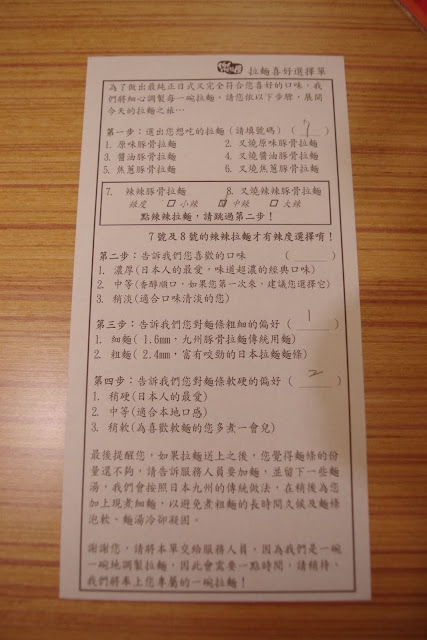 拉麵喜好選擇單
為了做出最純正日式又完全符合您喜好的口味，我
們將細心調製每一碗拉麵，請您依以下步驟，展開
今天的拉麵之旅…
第一步：選出您想吃的拉麵（請填號碼）（ 7 ）
1. 原味豚骨拉麵 2. 叉燒原味豚骨拉麵
3. 醬油豚骨拉麵 4. 叉燒醬油豚骨拉麵
5. 焦蔥豚骨拉麵 6. 叉燒焦蔥豚骨拉麵
7. 辣辣豚骨拉麵 8. 叉燒辣辣豚骨拉麵
辣度 □小辣 □中辣 □大辣
點辣辣拉麵，請跳過第二步！
7號及8號的辣辣拉麵才有辣度選擇唷！
第二步：告訴我們您喜歡的口味 （ ）
1. 濃厚(日本人的最愛，味道超濃的經典口味)
2. 中等(香醇順口，如果您第一次來，建議您選擇它)
3. 稍淡(適合口味清淡的您)
第三步：告訴我們您對麵條粗細的偏好 （ 1 ）
1. 細麵( 1.6mm，九州豚骨拉麵傳統用麵)
2. 粗麵( 2.4mm，富有咬勁的日本拉麵麵條)
第四步：告訴我們您對麵條軟硬的偏好（ 2 ）
1. 稍硬(日本人的最愛)
2. 中等(適合本地口感)
3. 稍軟(為喜歡軟麵的您多煮一會兒)
最後提醒您，如果拉麵送上之後，您覺得麵條的份
量還不夠，請告訴服務人員要加麵，並留下一些麵
湯，我們會按照日本九州的傳統做法，在稍後為您
加上現煮細麵，以避免煮粗麵的長時間久候及麵條
泡軟、麵湯冷卻凝固。
謝謝您，請將本單交給服務人員，因為我們是一碗
一碗地調製拉麵，因此會需要一點時間，請稍待，
我們將奉上您專屬的一碗拉麵！